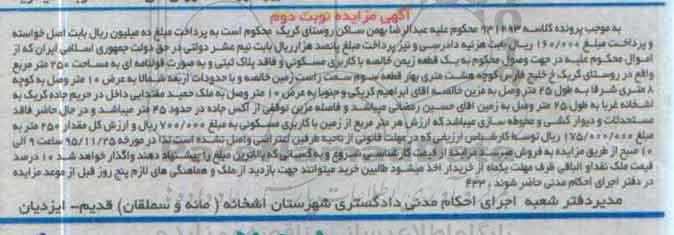 آگهی مزایده نوبت دوم
به موجب پرونده کلاسه ۹۳۱۸۹۳ محکوم علیه عبدالرضا بهمن ساکن روستای کریک محکوم است به پرداخت مبلغ ده میلیون ریال بابت اصل خواسته
و پرداخت مبلغ ۱۶۰/۰۰۰ ریال بابت هزینه دادرسی و نیز پرداخت مبلغ پانصد هزار ریال بابت نیم عشر دولتی در حق دولت جمهوری اسلامی ایران که از
اموال محکوم علیه در جهت وصول محکوم به یک قطعه زمین خالصه با کاربری مسکونی و فاقد پلاک ثبتی و به صورت قولنامه ای به مساحت ۲۵۰ متر مربع
واقع در روستای کریک خ خلیج فارس کوچه هشت متری بهار قطعه سوم سمت راست زمین خالصه و با حدودات اربعه شمالا به عرض ۱۰ متر وصل به کوچه
۸ متری شرقا به طول ۲۵ متر وصل به مزین خالصه اقای ابراهیم کریکی و جنوبا به عرض ۱۰ متر وصل به ملک حمید مقتدایی داخل در حریم جاده کریک به
اشخانه غربا به طول ۲۵ متر وصل به زمین اقای حسین رمضانی میباشد و فاصله مزین توقفی از آکس جاده در حدود ۴۵ متر میباشد و در حال حاضر فاقد
مستحدثات و دیوار کشی و محوطه سازی میباشد که ارزش هر متر مربع از زمین با کاربری مسکونی به مبلغ ۷۰۰/۰۰۰ ریال و ارزش کل مقدار ۲۵۰ متر به
مبلغ ۱۷۵/۰۰۰/۰۰۰ ریال توسط کارشناس ارزیابی که در مهلت قانونی از ناحیه طرفین اعتراضی واصل نشده است لذا در مورخه ۹۵/۱۱/۲۵ ساعت ۹ الی
۱۰ صبح از طریق مزایده به فروش میرسد مزایده از قیمت کارشناسی شروع و به کسانی که بالاترین مبلغ را پیشنهاد دهند واگذار خواهد شد ۱۰ درصد
قیمت ملک نقد او الباقی ظرف مهلت یکماه از خریدار اخذ میشود طالبین خرید میتوانند جهت بازدید از ملک و هماهنگی های لازم پنج روز قبل از موعد مزایده
در دفتر اجرای احکام مدنی حاضر شوند ، ۴۴۳
مدیر دفتر شعبه اجرای احکام مدنی دادگستری شهرستان اشخانه ( مانه و سملقان) قدیم- ایزدیان